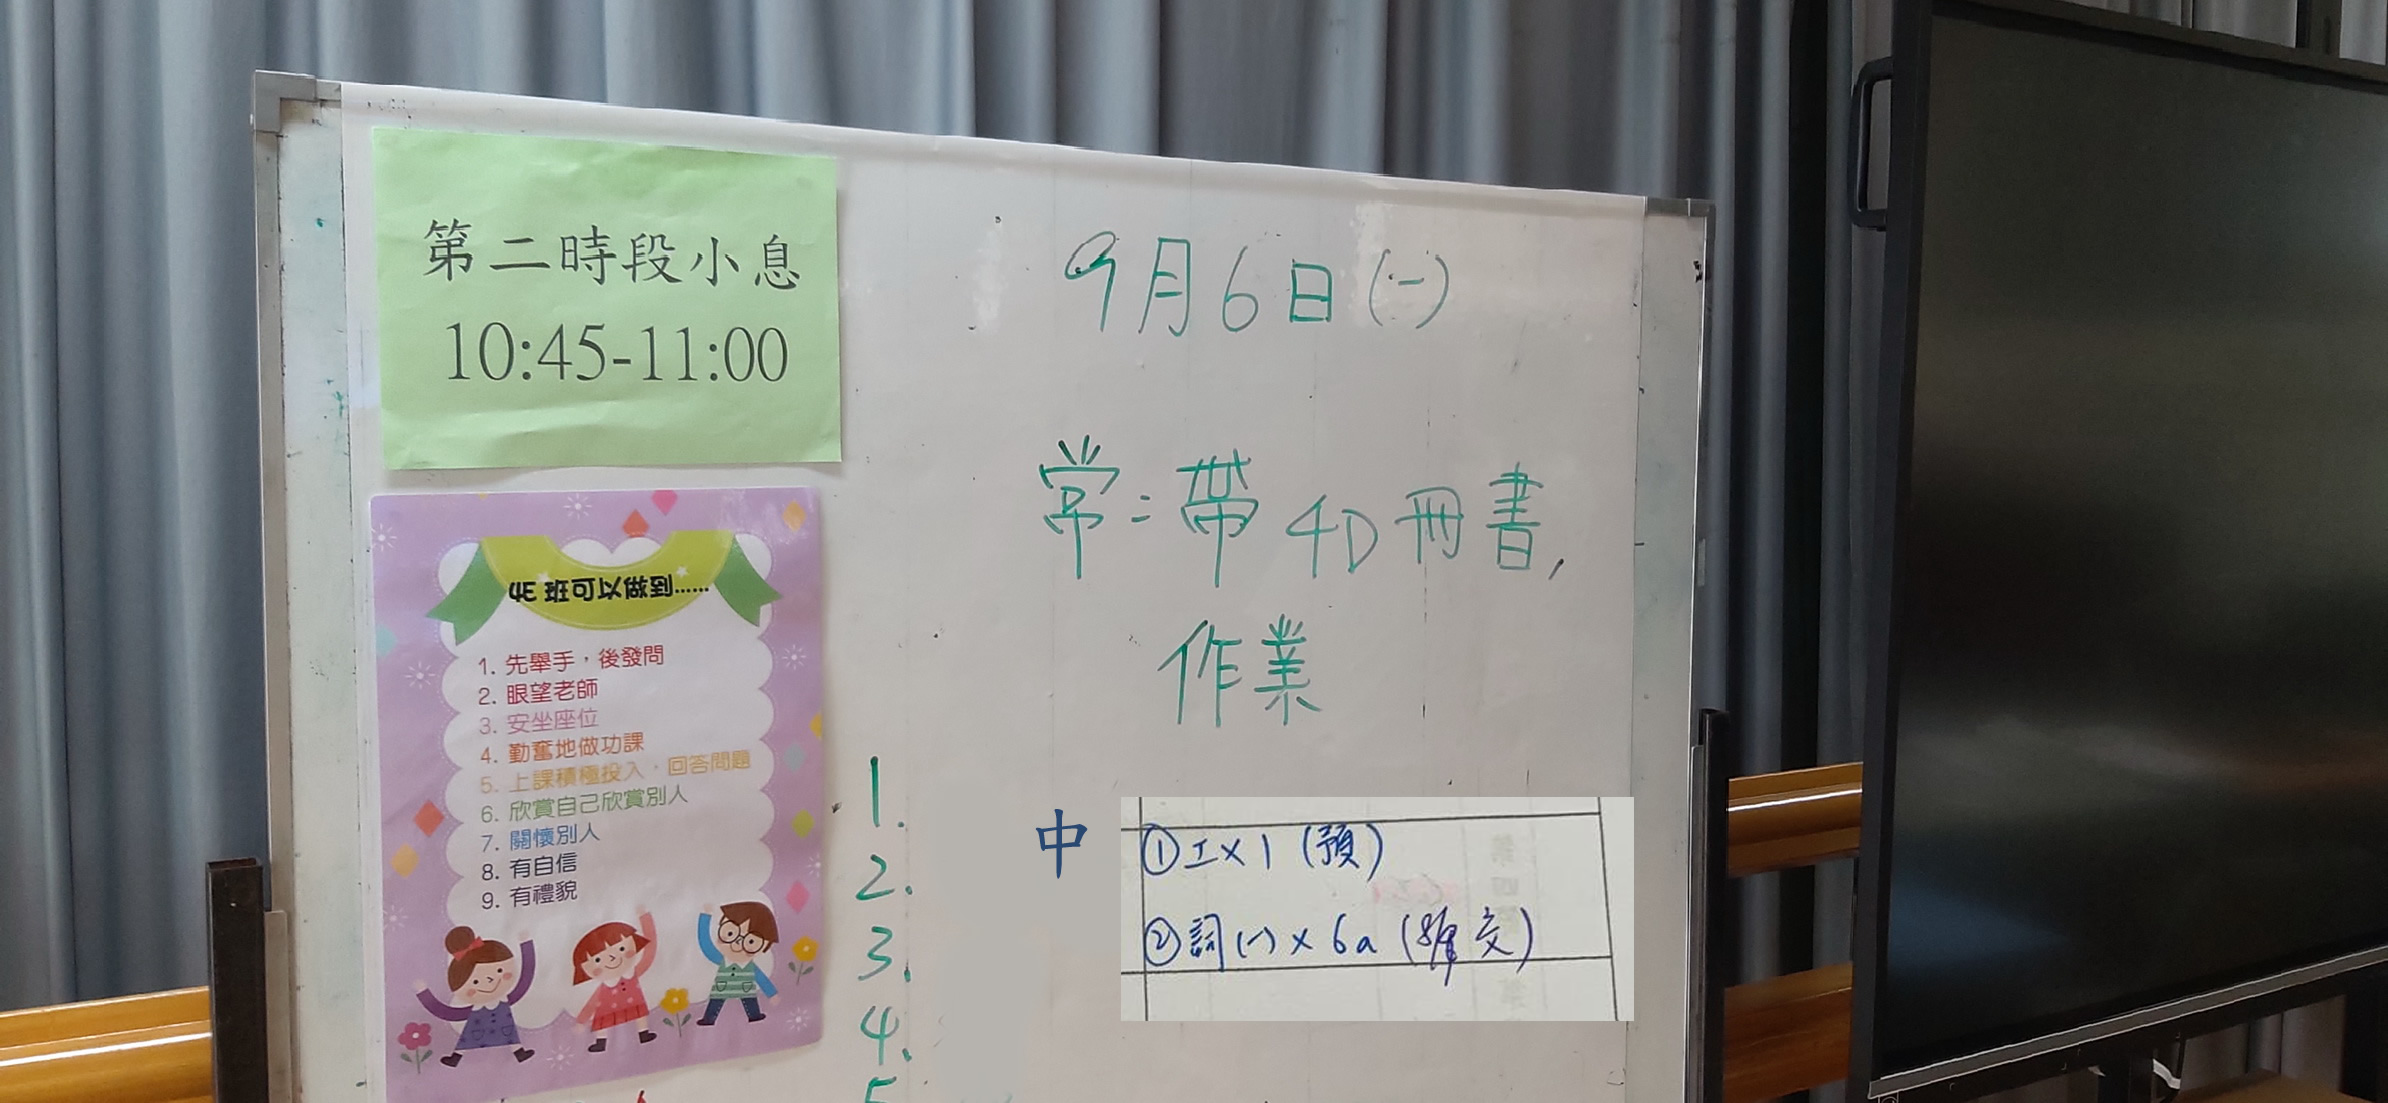 第二時段小息
10:45-11:00
4E 班可以做到……
1. 先舉手，後發問
2. 眼望老師
3. 安坐座位
4. 勤奮地做功課
5. 上課積極投入，回答問題
6. 欣賞自己欣賞別人
7. 關懷別人
8. 有自信
9. 有禮貌
9月6日(一)
常：帶 4D 冊書,
作業
1.
2.
3.
4.
5
中
①工×1 (預)
②詞(一)×6a (交)